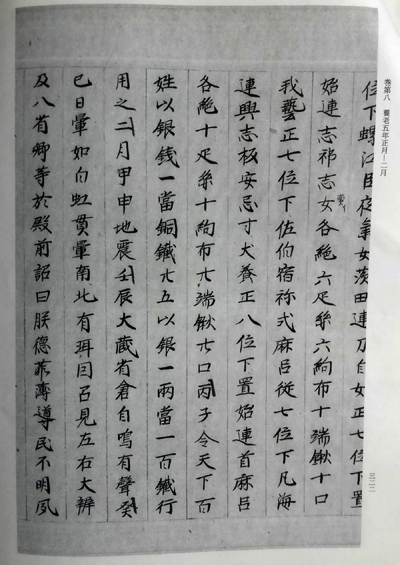 卷第八 養老五年正月—二月
位下螺江臣夜氣女茨田連刀自女正七位下置
始連志祁志女各絁六疋絲六絇布十端鍬十口
我藝正七位下佐伯宿祢式麻呂從七位下凡海
連興志板安忌寸犬養正八位下置始連首麻呂
各絁十疋絲十絇布廿端鍬廿口丙子令天下百
姓以銀錢一當銅錢廿五以銀一兩當一百錢行
用之二月甲申地震壬辰大藏省倉自鳴有聲癸
巳日暈如白虹貫暈南北有珥因召見左右大辨
及八省卿等於殿前詔曰朕德菲薄導民不明夙